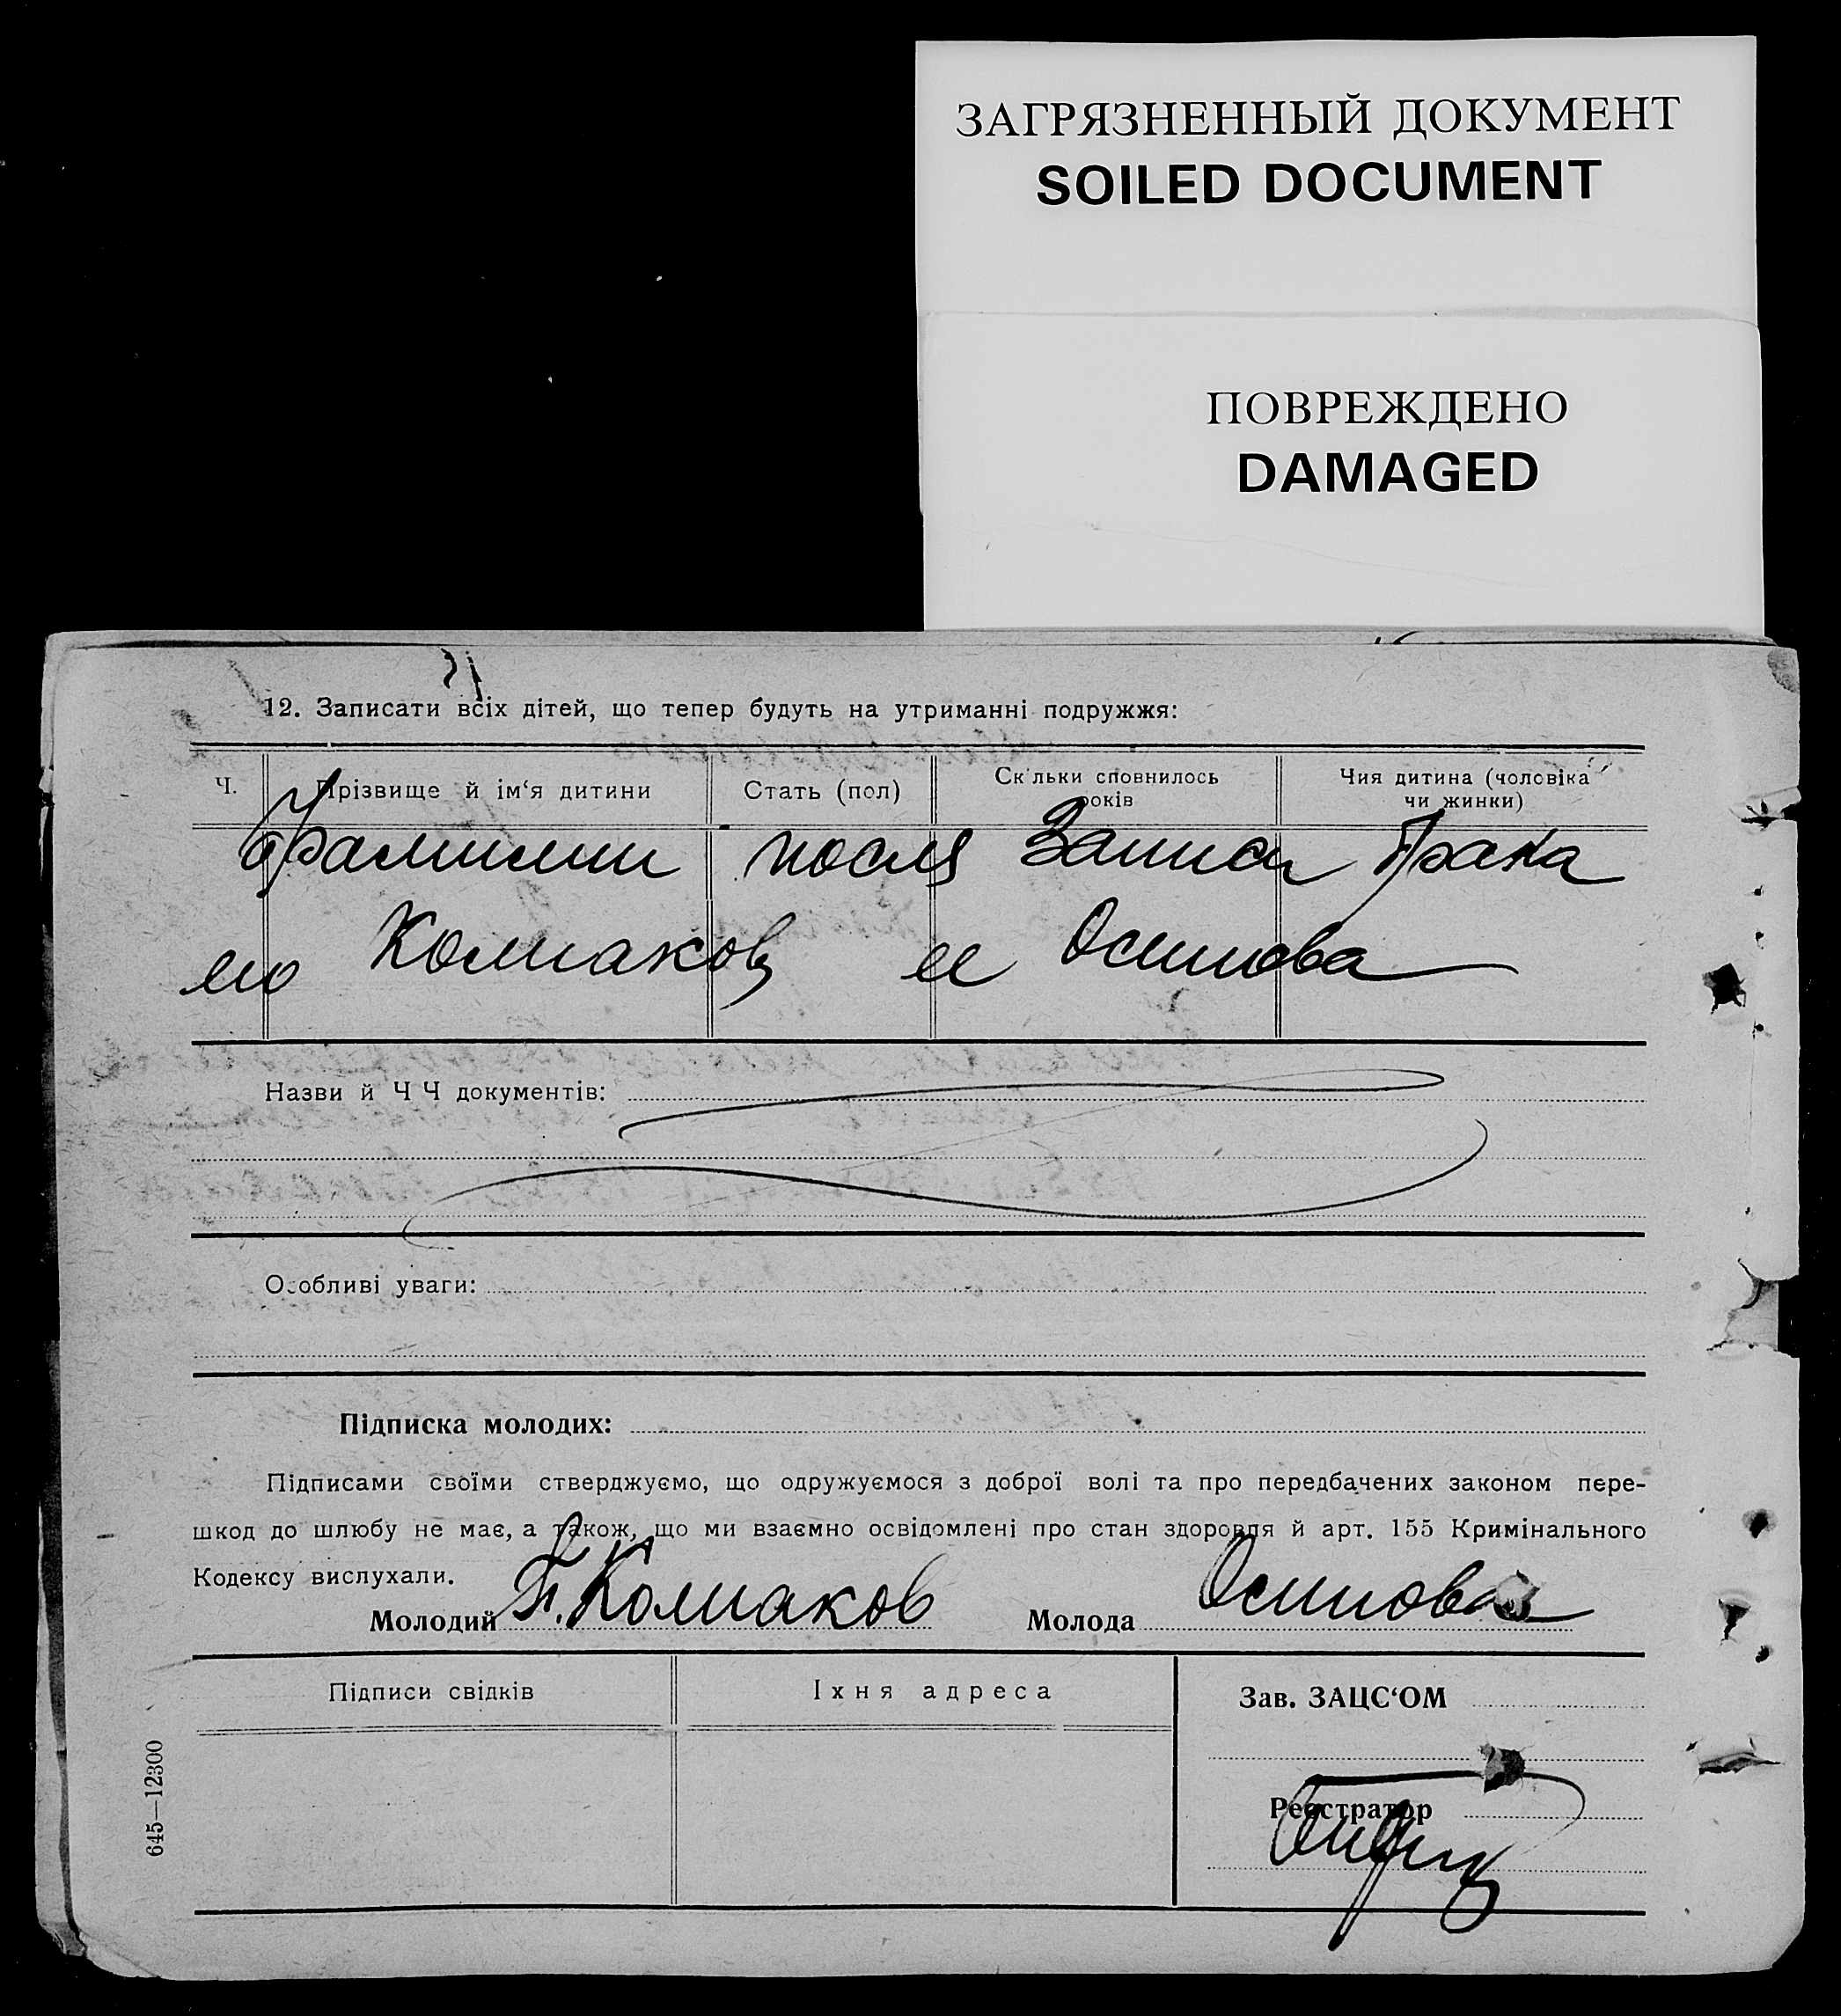 ЗАГРЯЗНЕННЫЙ ДОКУМЕНТ
SOILED DOCUMENT
ПОВРЕЖДЕНО
DAMAGED
12. Записати всіх дітей, що тепер будуть на утриманні подружжя:
Ч. Прізвище й ім‘я дитини Стать (пол) Скільки сповнилось років Чия дитина (чоловіка чи жинки)
Фамилии после Записи брака
его Колпаков ее Осипова
Назви й Ч Ч документів:
Особливі уваги:
Підписка молодих:
Підписами своїми стверджуємо, що одружуємося з доброї волі та про передбачених законом пере-
шкод до шлюбу не має, а також, що ми взаємно освідомлені про стан здоровля й арт. 155 Кримінального
Кодексу вислухали.
Молодий П. Колпаков Молода Осипова
Підписи свідків Їхня адреса Зав. ЗАЦС‘ОМ
Реєстратор
645—12300